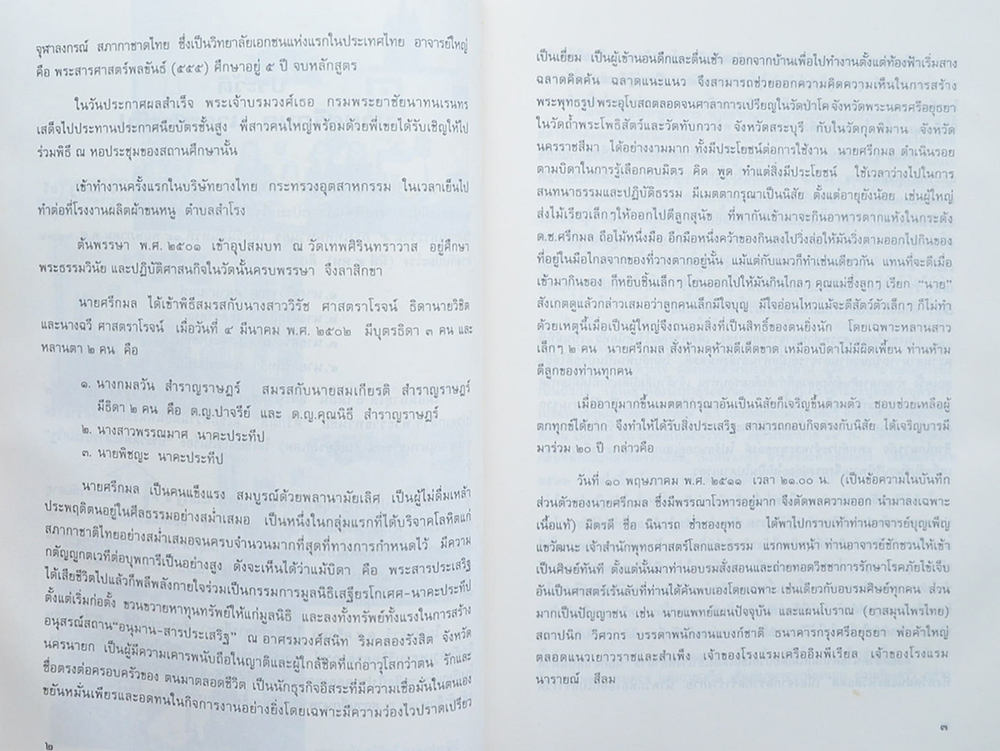 จุฬาลงกรณ์ สภากาชาดไทย ซึ่งเป็นวิทยาลัยเอกชนแห่งแรกในประเทศไทย อาจารย์ใหญ่
คือ พระสารศาสตร์พลขันธ์ (๕๕๕) ศึกษาอยู่ ๕ ปี จบหลักสูตร
ในวันประกาศผลสำเร็จ พระเจ้าบรมวงศ์เธอ กรมพระยาชัยนาทนเรนทร
เสด็จไปประทานประกาศนียบัตรชั้นสูง พี่สาวคนใหญ่พร้อมด้วยพี่เขยได้รับเชิญให้ไป
ร่วมพิธี ณ หอประชุมของสถานศึกษานั้น
เข้าทำงานครั้งแรกในบริษัทยางไทย กระทรวงอุตสาหกรรม ในเวลาเย็นไป
ทำต่อที่โรงงานผลิตผ้าขนหนู ตำบลสำโรง
ต้นพรรษา พ.ศ. ๒๕๐๑ เข้าอุปสมบท ณ วัดเทพศิรินทราวาส อยู่ศึกษา
พระธรรมวินัย และปฏิบัติศาสนกิจในวัดนั้นครบพรรษา จึงลาสิกขา
นายศรีกมล ได้เข้าพิธีสมรสกับนางสาววิรัช ศาสตราโรจน์ ธิดานายวิชิต
และนางฉวี ศาสตราโรจน์ เมื่อวันที่ ๔ มีนาคม พ.ศ. ๒๕๐๒ มีบุตรธิดา ๓ คน และ
หลานตา ๒ คน คือ
๑. นางกมลวัน สำราญราษฎร์ สมรสกับนายสมเกียรติ สำราญราษฎร์
มีธิดา ๒ คน คือ ด.ญ.ปาจรีย์ และ ด.ญ.คุณนิธี สำราญราษฎร์
๒. นางสาวพรรณมาศ นาคะประทีป
๓. นายพิชญะ นาคะประทีป
นายศรีกมล เป็นคนแข็งแรง สมบูรณ์ด้วยพลานามัยเลิศ เป็นผู้ไม่ดื่มเหล้า
ประพฤติตนอยู่ในศีลธรรมอย่างสม่ำเสมอ เป็นหนึ่งในกลุ่มแรกที่ได้บริจาคโลหิตแก่
สภากาชาติไทยอย่างสม่ำเสมอจนครบจำนวนมากที่สุดที่ทางการกำหนดไว้ มีความ
กตัญญูกตเวทีต่อบุพการีเป็นอย่างสูง ดังจะเห็นได้ว่าแม้บิดา คือ พระสารประเสริฐ
ได้เสียชีวิตไปแล้วก็พลีพลังกายใจร่วมเป็นกรรมการมูลนิธิเสฐียรโกเศศ-นาคะประทีป
ตั้งแต่เริ่มก่อตั้ง ขวนขวายหาทุนทรัพย์ให้แก่มูลนิธิ และลงทั้งทรัพย์ทั้งแรงในการสร้าง
อนุสรณ์สถาน"อนุมาน-สารประเสริฐ" ณ อาศรมวงศ์สนิท ริมคลองรังสิต จังหวัด
นครนายก เป็นผู้มีความเคารพนับถือในญาติและผู้ใกล้ชิดที่แก่อาวุโสกว่าตน รักและ
ซื่อตรงต่อครอบครัวของ ตนมาตลอดชีวิต เป็นนักธุรกิจอิสระที่มีความเชื่อมั่นในตนเอง
ขยันหมั่นเพียรและอดทนในกิจการงานอย่างยิ่งโดยเฉพาะมีความว่องไวปราดเปรียว
๒
เป็นเยี่ยม เป็นผู้เข้านอนดึกและตื่นเช้า ออกจากบ้านเพื่อไปทำงานตั้งแต่ท้องฟ้าเริ่มสาง
ฉลาดคิดค้น ฉลาดแนะแนว จึงสามารถช่วยออกความคิดความเห็นในการสร้าง
พระพุทธรูป พระอุโบสถตลอดจนศาลาการเปรียญในวัดป่าโค จังหวัดพระนครศรีอยุธยา
ในวัดถ้ำพระโพธิสัตว์และวัดทับกวาง จังหวัดสระบุรี กับในวัดกุดพิมาน จังหวัด
นครราชสีมา ได้อย่างงามมาก ทั้งมีประโยชน์ต่อการใช้งาน นายศรีกมล ดำเนินรอย
ตามบิดาในการรู้เลือกคบมิตร คิด พูด ทำแต่สิ่งมีประโยชน์ ใช้เวลาว่างไปในการ
สนทนาธรรมและปฏิบัติธรรม มีเมตตากรุณาเป็นนิสัย ตั้งแต่อายุยังน้อย เช่นผู้ใหญ่
ส่งไม้เรียวเล็กๆให้ออกไปตีลูกสุนัข ที่พากันเข้ามาจะกินอาหารตากแห้งในกระด้ง
ด.ช.ศรีกมล ถือไม้หนึ่งมือ อีกมือหนึ่งคว้าของกินลงไปวิ่งล่อให้มันวิ่งตามออกไปกินของ
ที่อยู่ในมือไกลจากของที่วางตากอยู่นั้น แม้แต่กับแมวก็ทำเช่นเดียวกัน แทนที่จะตีเมื่อ
เข้ามากินของ ก็หยิบชิ้นเล็กๆ โยนออกไปให้มันกินไกลๆ คุณแม่ซึ่งลูกๆ เรียก "นาย"
สังเกตดูแล้วกล่าวเสมอว่าลูกคนเล็กมีใจบุญ มีใจอ่อนไหวแม้จะตีสัตว์ตัวเล็กๆ ก็ไม่ทำ
ด้วยเหตุนี้เมื่อเป็นผู้ใหญ่จึงถนอมสิ่งที่เป็นสิทธิ์ของตนยิ่งนัก โดยเฉพาะหลานสาว
เล็กๆ ๒ คน นายศรีกมล สั่งห้ามดุห้ามตีเด็ดขาด เหมือนบิดาไม่มีผิดเพี้ยน ท่านห้าม
ตีลูกของท่านทุกคน
เมื่ออายุมากขึ้นเมตตากรุณาอันเป็นนิสัยก็เจริญขึ้นตามตัว ชอบช่วยเหลือผู้
ตกทุกข์ได้ยาก จึงทำให้ได้รับสิ่งประเสริฐ สามารถกอบกิจตรงกับนิสัย ได้เจริญบารมี
มาร่วม ๒๐ ปี กล่าวคือ
วันที่ ๑๐ พฤษภาคม พ.ศ. ๒๕๑๑ เวลา ๒๑.๐๐ น. (เป็นข้อความในบันทึก
ส่วนตัวของนายศรีกมล ซึ่งมีพรรณาโวหารอยู่มาก จึงตัดพลความออก นำมาลงเฉพาะ
เนื้อแท้) มิตรดี ชื่อ นินารถ ช่ำชองยุทธ ได้พาไปกราบเท้าท่านอาจารย์บุญเพ็ญ
แขวัฒนะ เจ้าสำนักพุทธศาสตร์โลกและธรรม แรกพบหน้า ท่านอาจารย์ชักชวนให้เข้า
เป็นศิษย์ทันที ตั้งแต่นั้นมาท่านอบรมสั่งสอนและถ่ายทอดวิชชาการรักษาโรคภัยไข้เจ็บ
อันเป็นศาสตร์เร้นลับที่ท่านได้ค้นพบเองโดยเฉพาะ เช่นเดียวกับอบรมศิษย์ทุกคน ส่วน
มากเป็นปัญญาชน เช่น นายแพทย์แผนปัจจุบัน และแผนโบราณ (ยาสมุนไพรไทย)
สถาปนิก วิศวกร บรรดาพนักงานแบงก์ชาติ ธนาคารกรุงศรีอยุธยา พ่อค้าใหญ่
ตลอดแนวเยาวราชและสำเพ็ง เจ้าของโรงแรมเครืออิมพีเรียล เจ้าของโรงแรม
นารายณ์ สีลม
๓